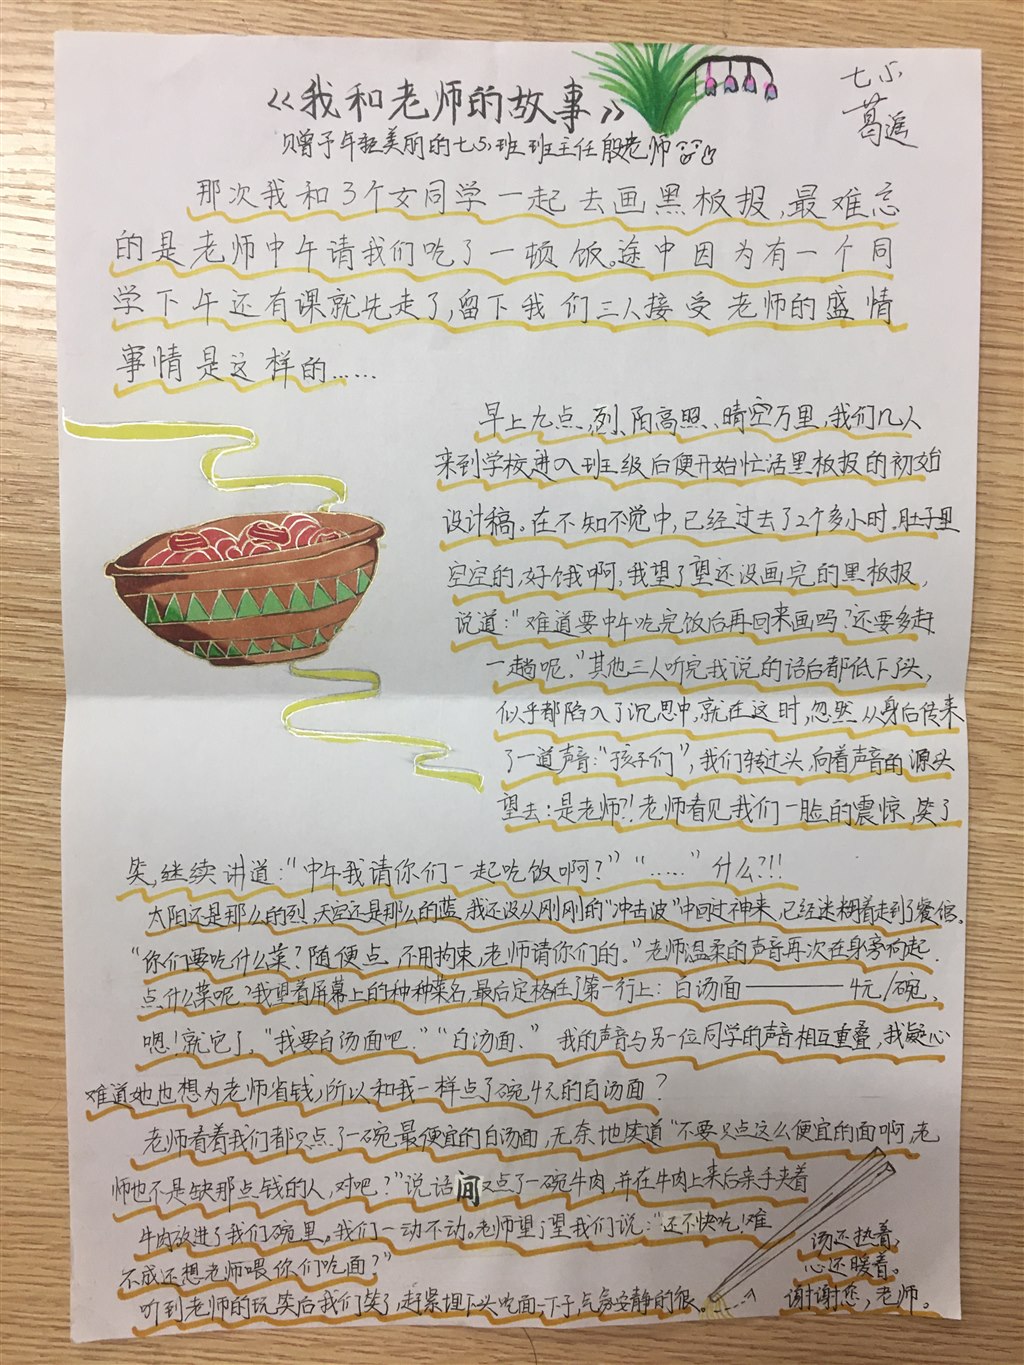 《我和老师的故事》
七5
葛遥
赠予年轻美丽的七5班班主任殷老师
那次我和3个女同学一起去画黑板报,最难忘
的是老师中午请我们吃了一顿饭。途中因为有一个同
学下午还有课就先走了,留下我们三人接受老师的盛情
事情是这样的……
早上九点,烈阳高照、晴空万里,我们几人
来到学校进入班级后便开始忙活黑板报的初始
设计稿。在不知不觉中,已经过去了2个多小时。肚子里
空空的,好饿啊,我望了望还没画完的黑板报,
说道:“难道要中午吃完饭后再回来画吗?还要多赶
一趟呢.”其他三人听完我说的话后都低下头,
似乎都陷入了沉思中,就在这时,忽然从身后传来
了一道声音:“孩子们”,我们转过头,向着声音的源头
望去:是老师?!老师看见我们一脸的震惊,笑了
笑,继续讲道:“中午我请你们一起吃饭啊?”“……”什么?!!
太阳还是那么的烈,天空还是那么的蓝,我还没从刚刚的“冲击波”中回过神来,已经迷糊着走到了餐馆。
“你们要吃什么菜?随便点,不用拘束,老师请你们的。”老师温柔的声音再次在身旁响起.
点什么菜呢?我望着屏幕上的种种菜名,最后定格在了第一行上:白汤面————4元/碗、
嗯!就它了.“我要白汤面吧.”“白汤面.”我的声音与另一位同学的声音相互重叠,我疑心
难道她也想为老师省钱,所以和我一样点了碗4元的白汤面?
老师看着我们都只点了一碗最便宜的白汤面,无奈地笑道“不要只点这么便宜的面啊,老
师也不是缺那点钱的人,对吧?”说话间又点了一碗牛肉,并在牛肉上来后亲手夹着
牛肉放进了我们碗里。我们一动不动。老师望了望我们说:“还不快吃!难
不成还想老师喂你们吃面?”
听到老师的玩笑后我们笑了,赶紧埋下头吃面一下子,气氛安静的很。
汤还热着,
心还暖着。
谢谢您,老师。